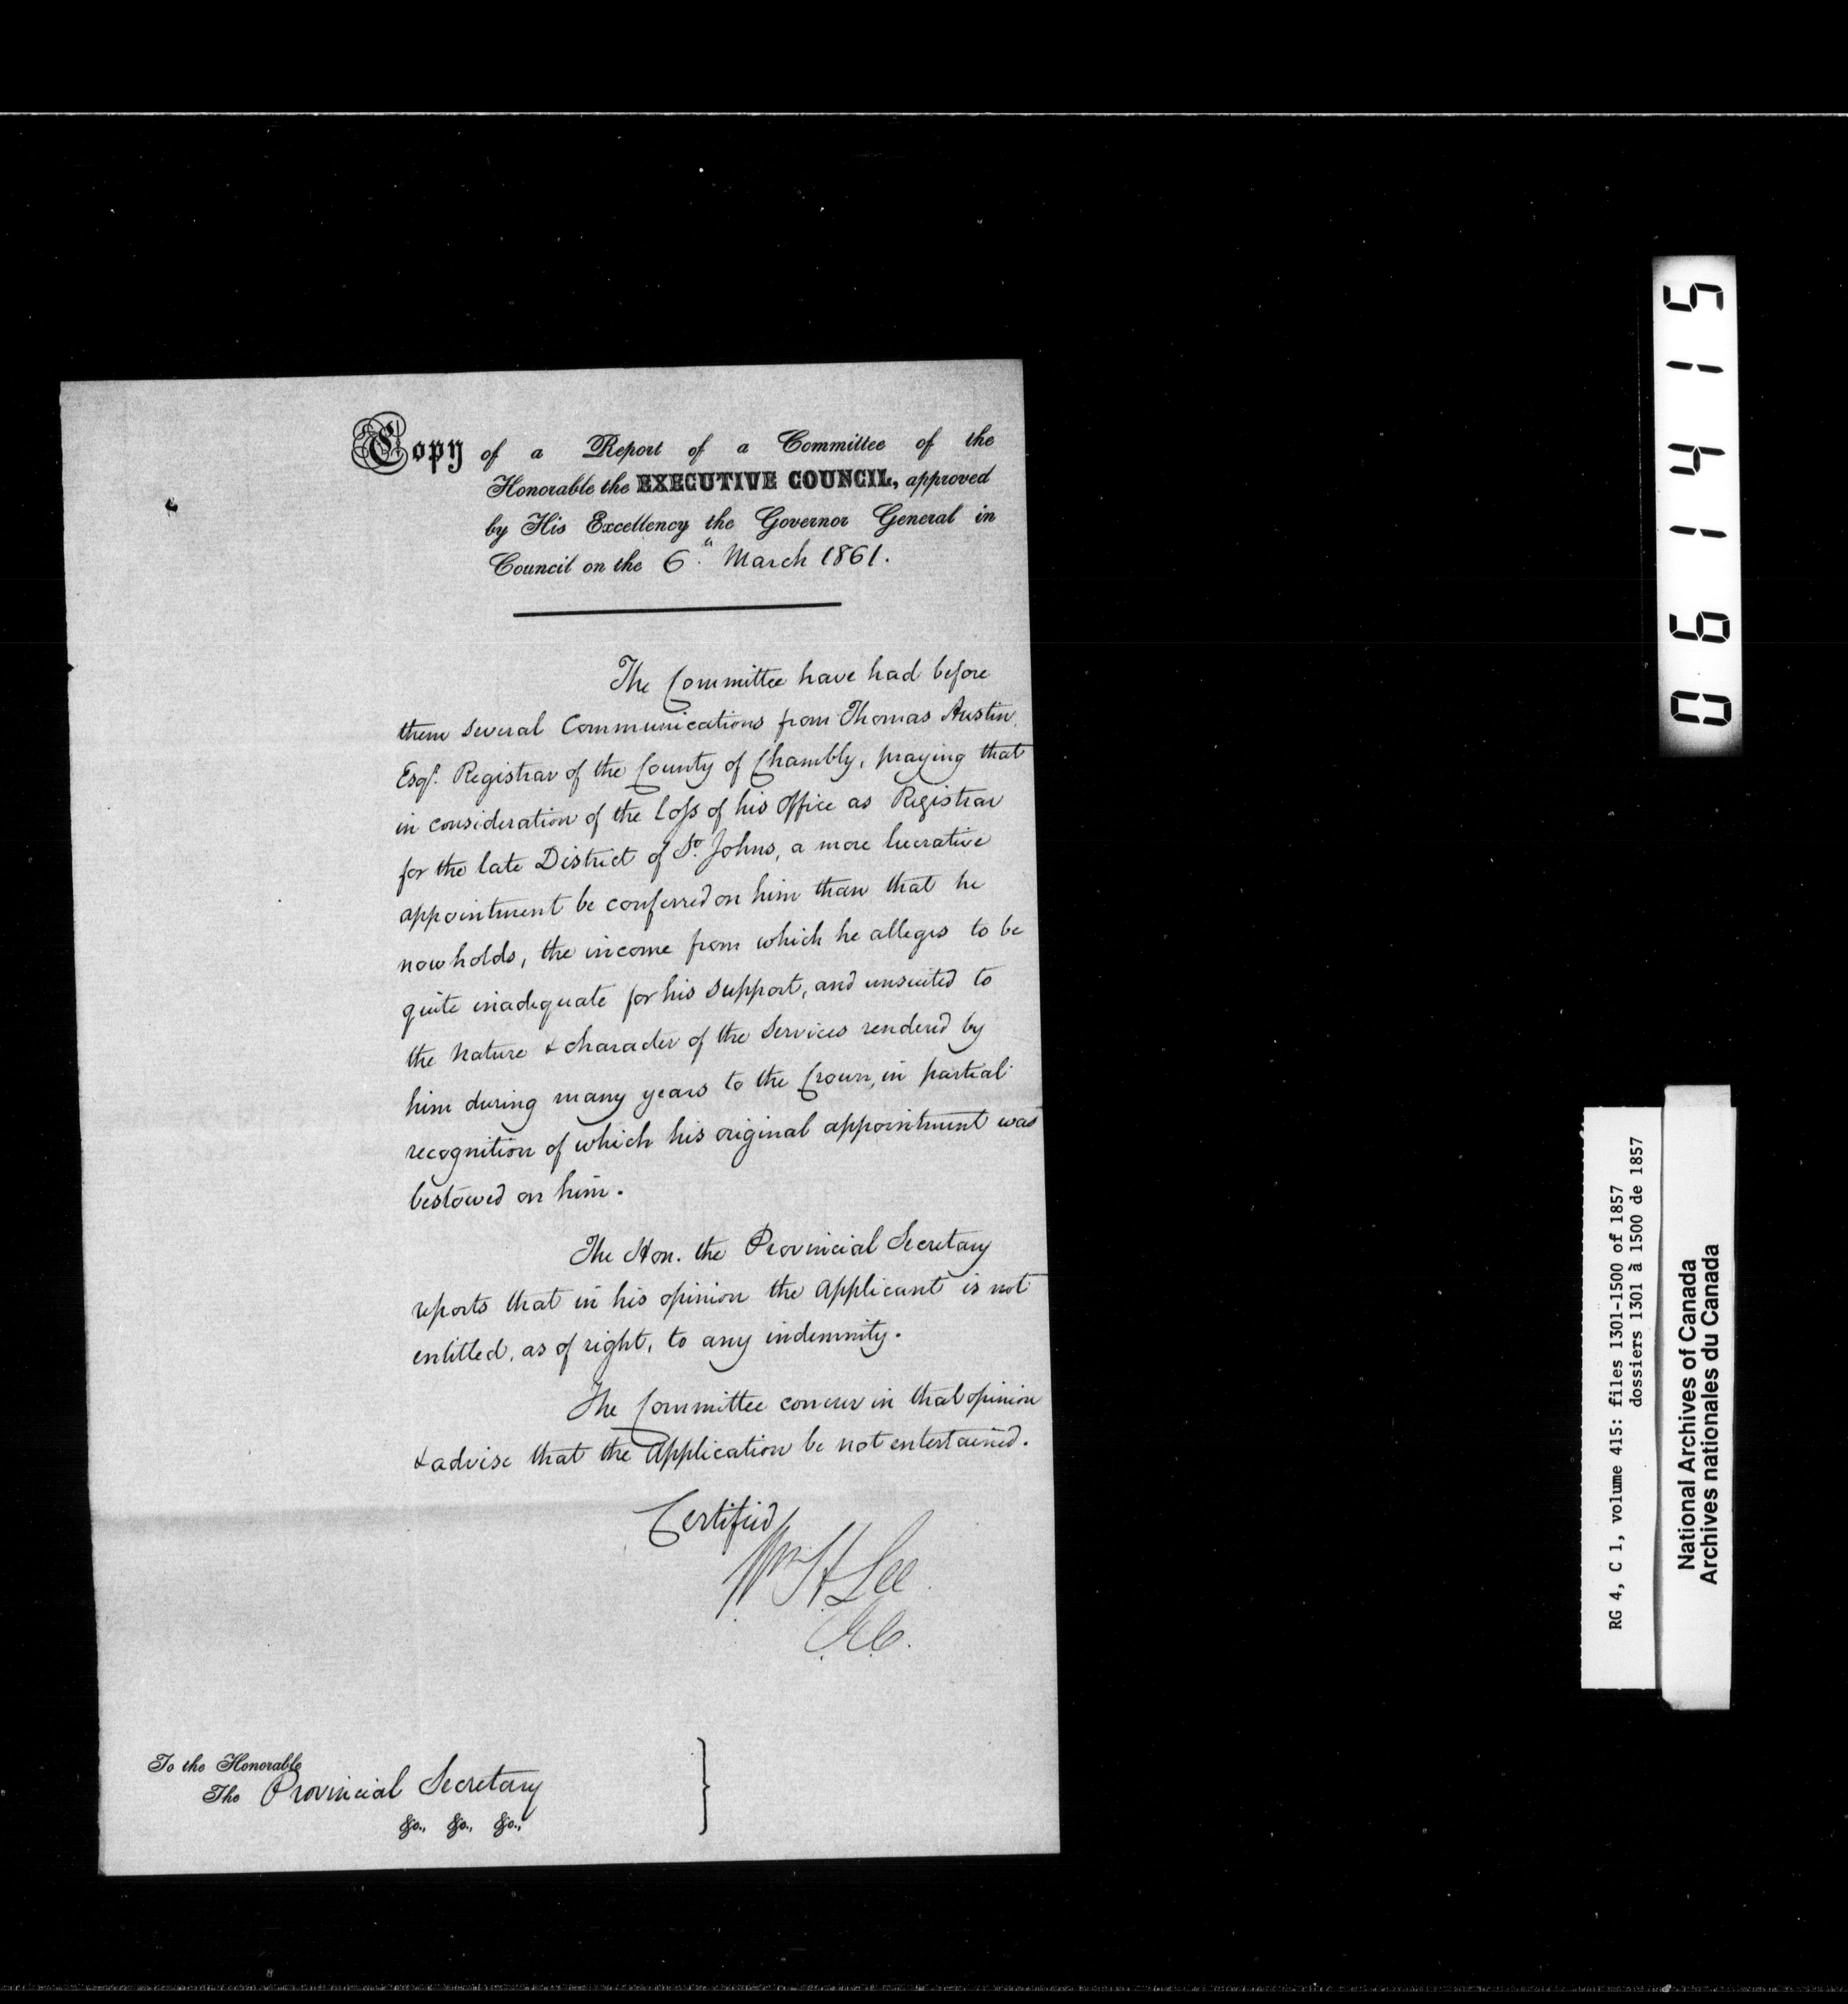 Copy of a Report of a Committee of the
Honorable the EXECUTIVE COUNCIL, approved
by His Excellency the Governor General in
Council on the 6th March 1861.
The Committee have had before
them several Communications from Thomas Austin
Esqr. Registrar of the County of Chambly, praying that
in consideration of the loss of his Office as Registrar
for the late District of St. Johns, a more lucrative
appointment be conferred on him than that he
now holds, the income from which he alleges to be
quite inadequate for his support, and unsuited to
the nature & character of the Services rendered by
him during many years to the Crown, in partial
recognition of which his original appointment was
bestowed on him.
The Hon. the Provincial Secretary
reports that in his opinion the applicant is not
entitled, as of right, to any indemnity.
The Committee concur in that opinion
& advise that the Application be not entertained.
Certified
Wm H Lee
C.E.C.
To the Honorable
The Provincial Secretary
&c., &c., &c.,
061415
RG 4, C 1, volume 415: files 1301-1500 of 1857
dossiers 1301 à 1500 de 1857
National Archives of Canada
Archives nationales du Canada